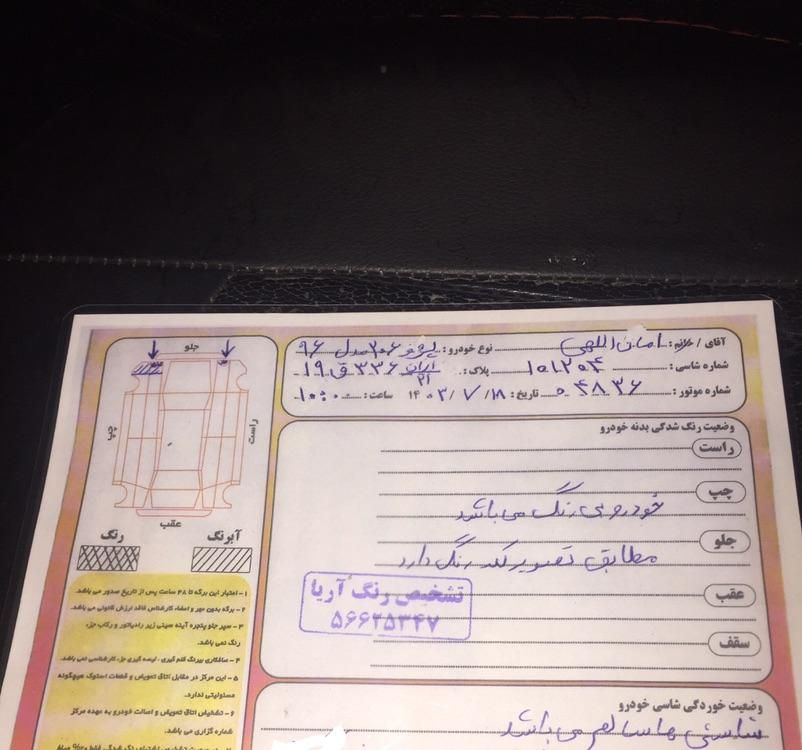 آقای / خانم : امان اللهی نوع خودرو : پژو ۲۰۶ مدل ۹۶
شماره شاسی : ۱۵۱۳۰۴ پلاک : ایران ۲۱ ۳۳۶ ق ۱۹
شماره موتور : ۰۴۸۳۶ تاریخ : ۱۴۰۳/۷/۱۸ ساعت : ۱۰:۰۰
وضعیت رنگ شدگی بدنه خودرو
راست
چپ
خودرو بی رنگ می باشد
جلو
مطابق تصویر لکه رنگ دارد
عقب
سقف
تشخیص رنگ آریا
۵۶۶۲۵۳۴۷
وضعیت خوردگی شاسی خودرو
شاسی ها سالم می باشد
جلو
راست
چپ
عقب
رنگ
آبرنگ
۱- اعتبار این برگه تا ۴۸ ساعت پس از تاریخ صدور می باشد.
۲- برگه بدون مهر و امضاء کارشناس فاقد ارزش قانونی می باشد.
۳- سپر جلو پنجره آینه سینی زیر رادیاتور و رکاب جزء
رنگ نمی باشد.
۴- صافکاری بیرنگ قلم گیری ، لیسه گیری جزء کارشناسی نمی باشد.
۵- این مرکز در مقابل اتاق تعویض و قطعات استوک هیچگونه
مسئولیتی ندارد.
۶- تشخیص اتاق تعویض و اصالت خودرو به عهده مرکز
شماره گزاری می باشد.